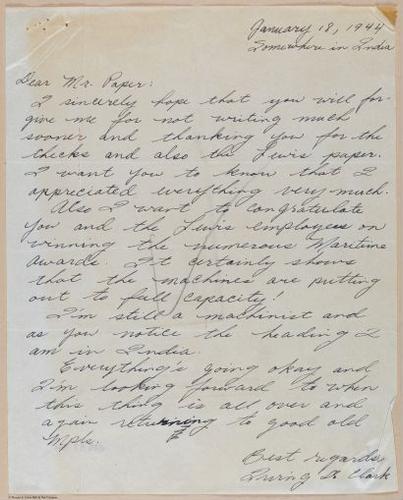 January 18, 1944
Somewhere in India
Dear Mr. Paper:
I sincerely hope that you will for-
give me for not writing much
sooner and thanking you for the
checks and also the Lewis paper.
I want you to know that I
appreciated everything very much.
Also I want to congratulate
you and the Lewis employees on
winning the numerous Maritime
Awards. It certainly shows
that the machines are putting
out to full capacity!
I'm still a machinist and
as you notice the heading I
am in India.
Everything's going okay and
I'm looking forward to when
this thing is all over and
again returning to good old
Mpls.
Best regards,
Irving D. Clark